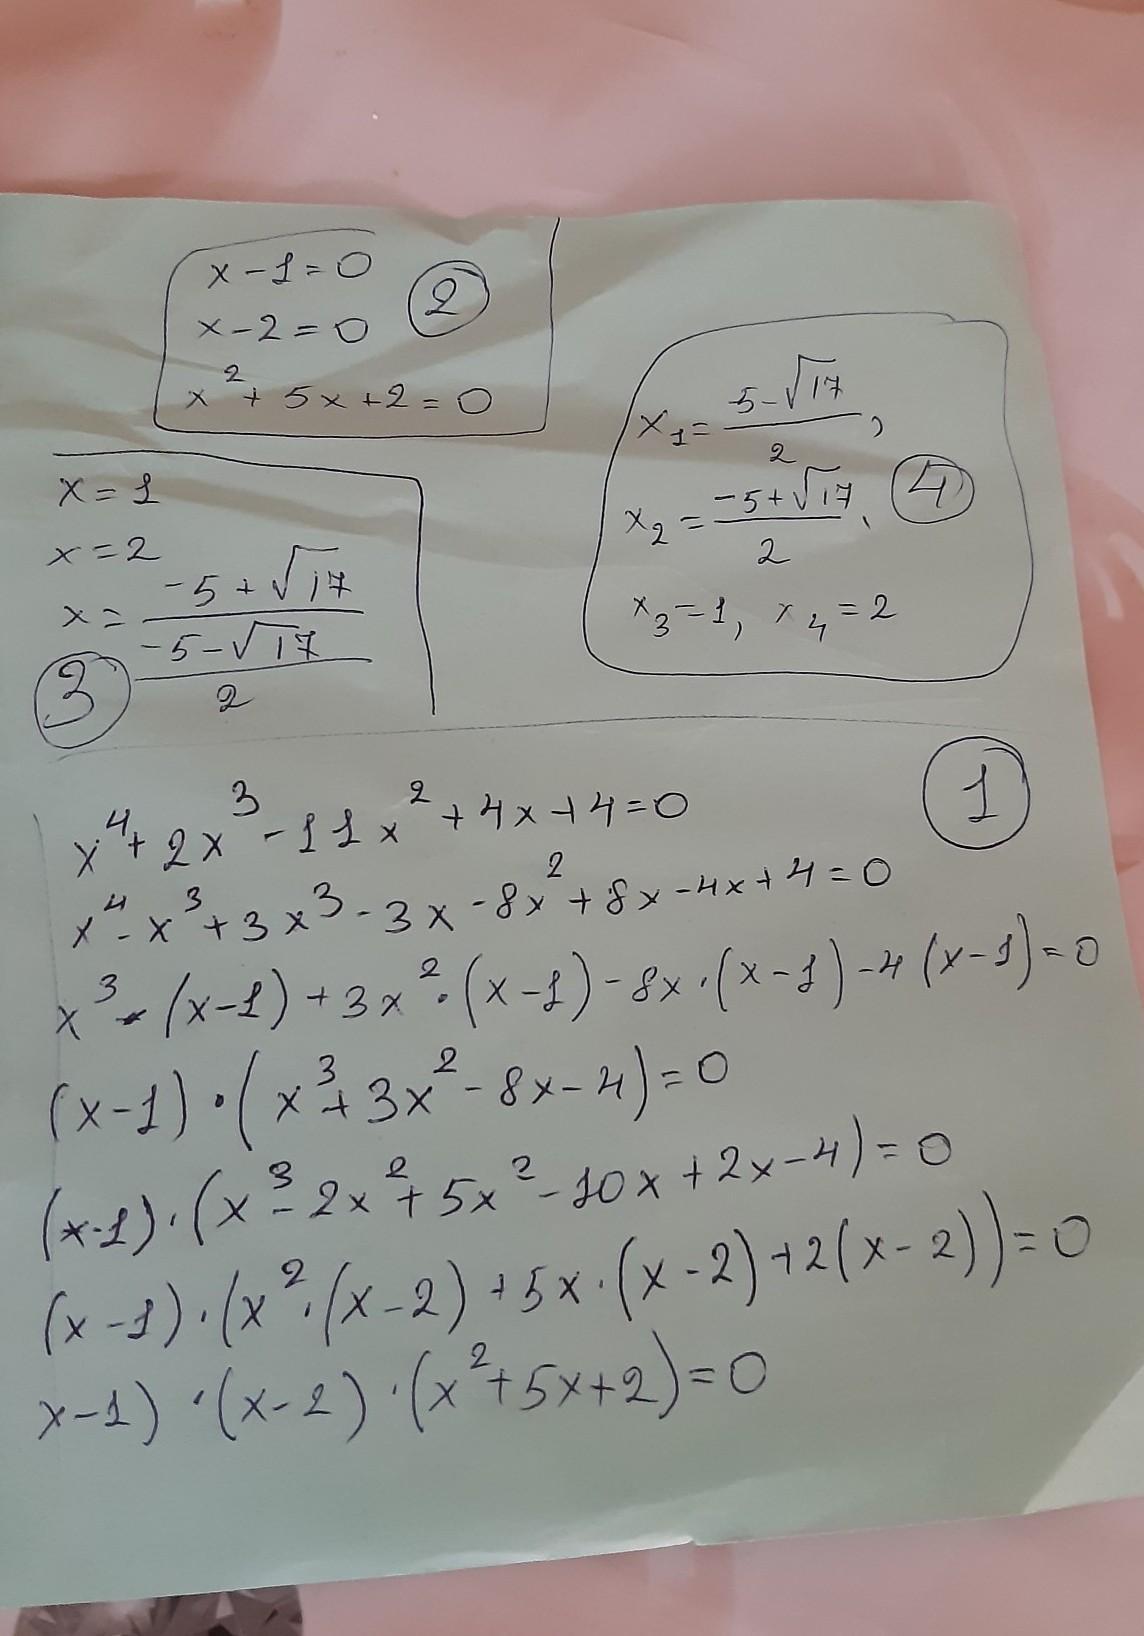 x - 1 = 0
x - 2 = 0
x² + 5x + 2 = 0
2
x = 1
x = 2
x = -5 + √17
-5 - √17
2
3
x₁ = 5 - √17 / 2 ,
x₂ = -5 + √17 / 2 ,
x₃ = 1, x₄ = 2
4
1
x⁴ + 2x³ - 11x² + 4x + 4 = 0
x⁴ - x³ + 3x³ - 3x - 8x² + 8x - 4x + 4 = 0
x³ - (x - 1) + 3x² · (x - 1) - 8x · (x - 1) - 4 (x - 1) = 0
(x - 1) · (x³ + 3x² - 8x - 4) = 0
(x - 1) · (x³ - 2x² + 5x² - 10x + 2x - 4) = 0
(x - 1) · (x² · (x - 2) + 5x · (x - 2) + 2(x - 2)) = 0
x - 1) · (x - 2) · (x² + 5x + 2) = 0